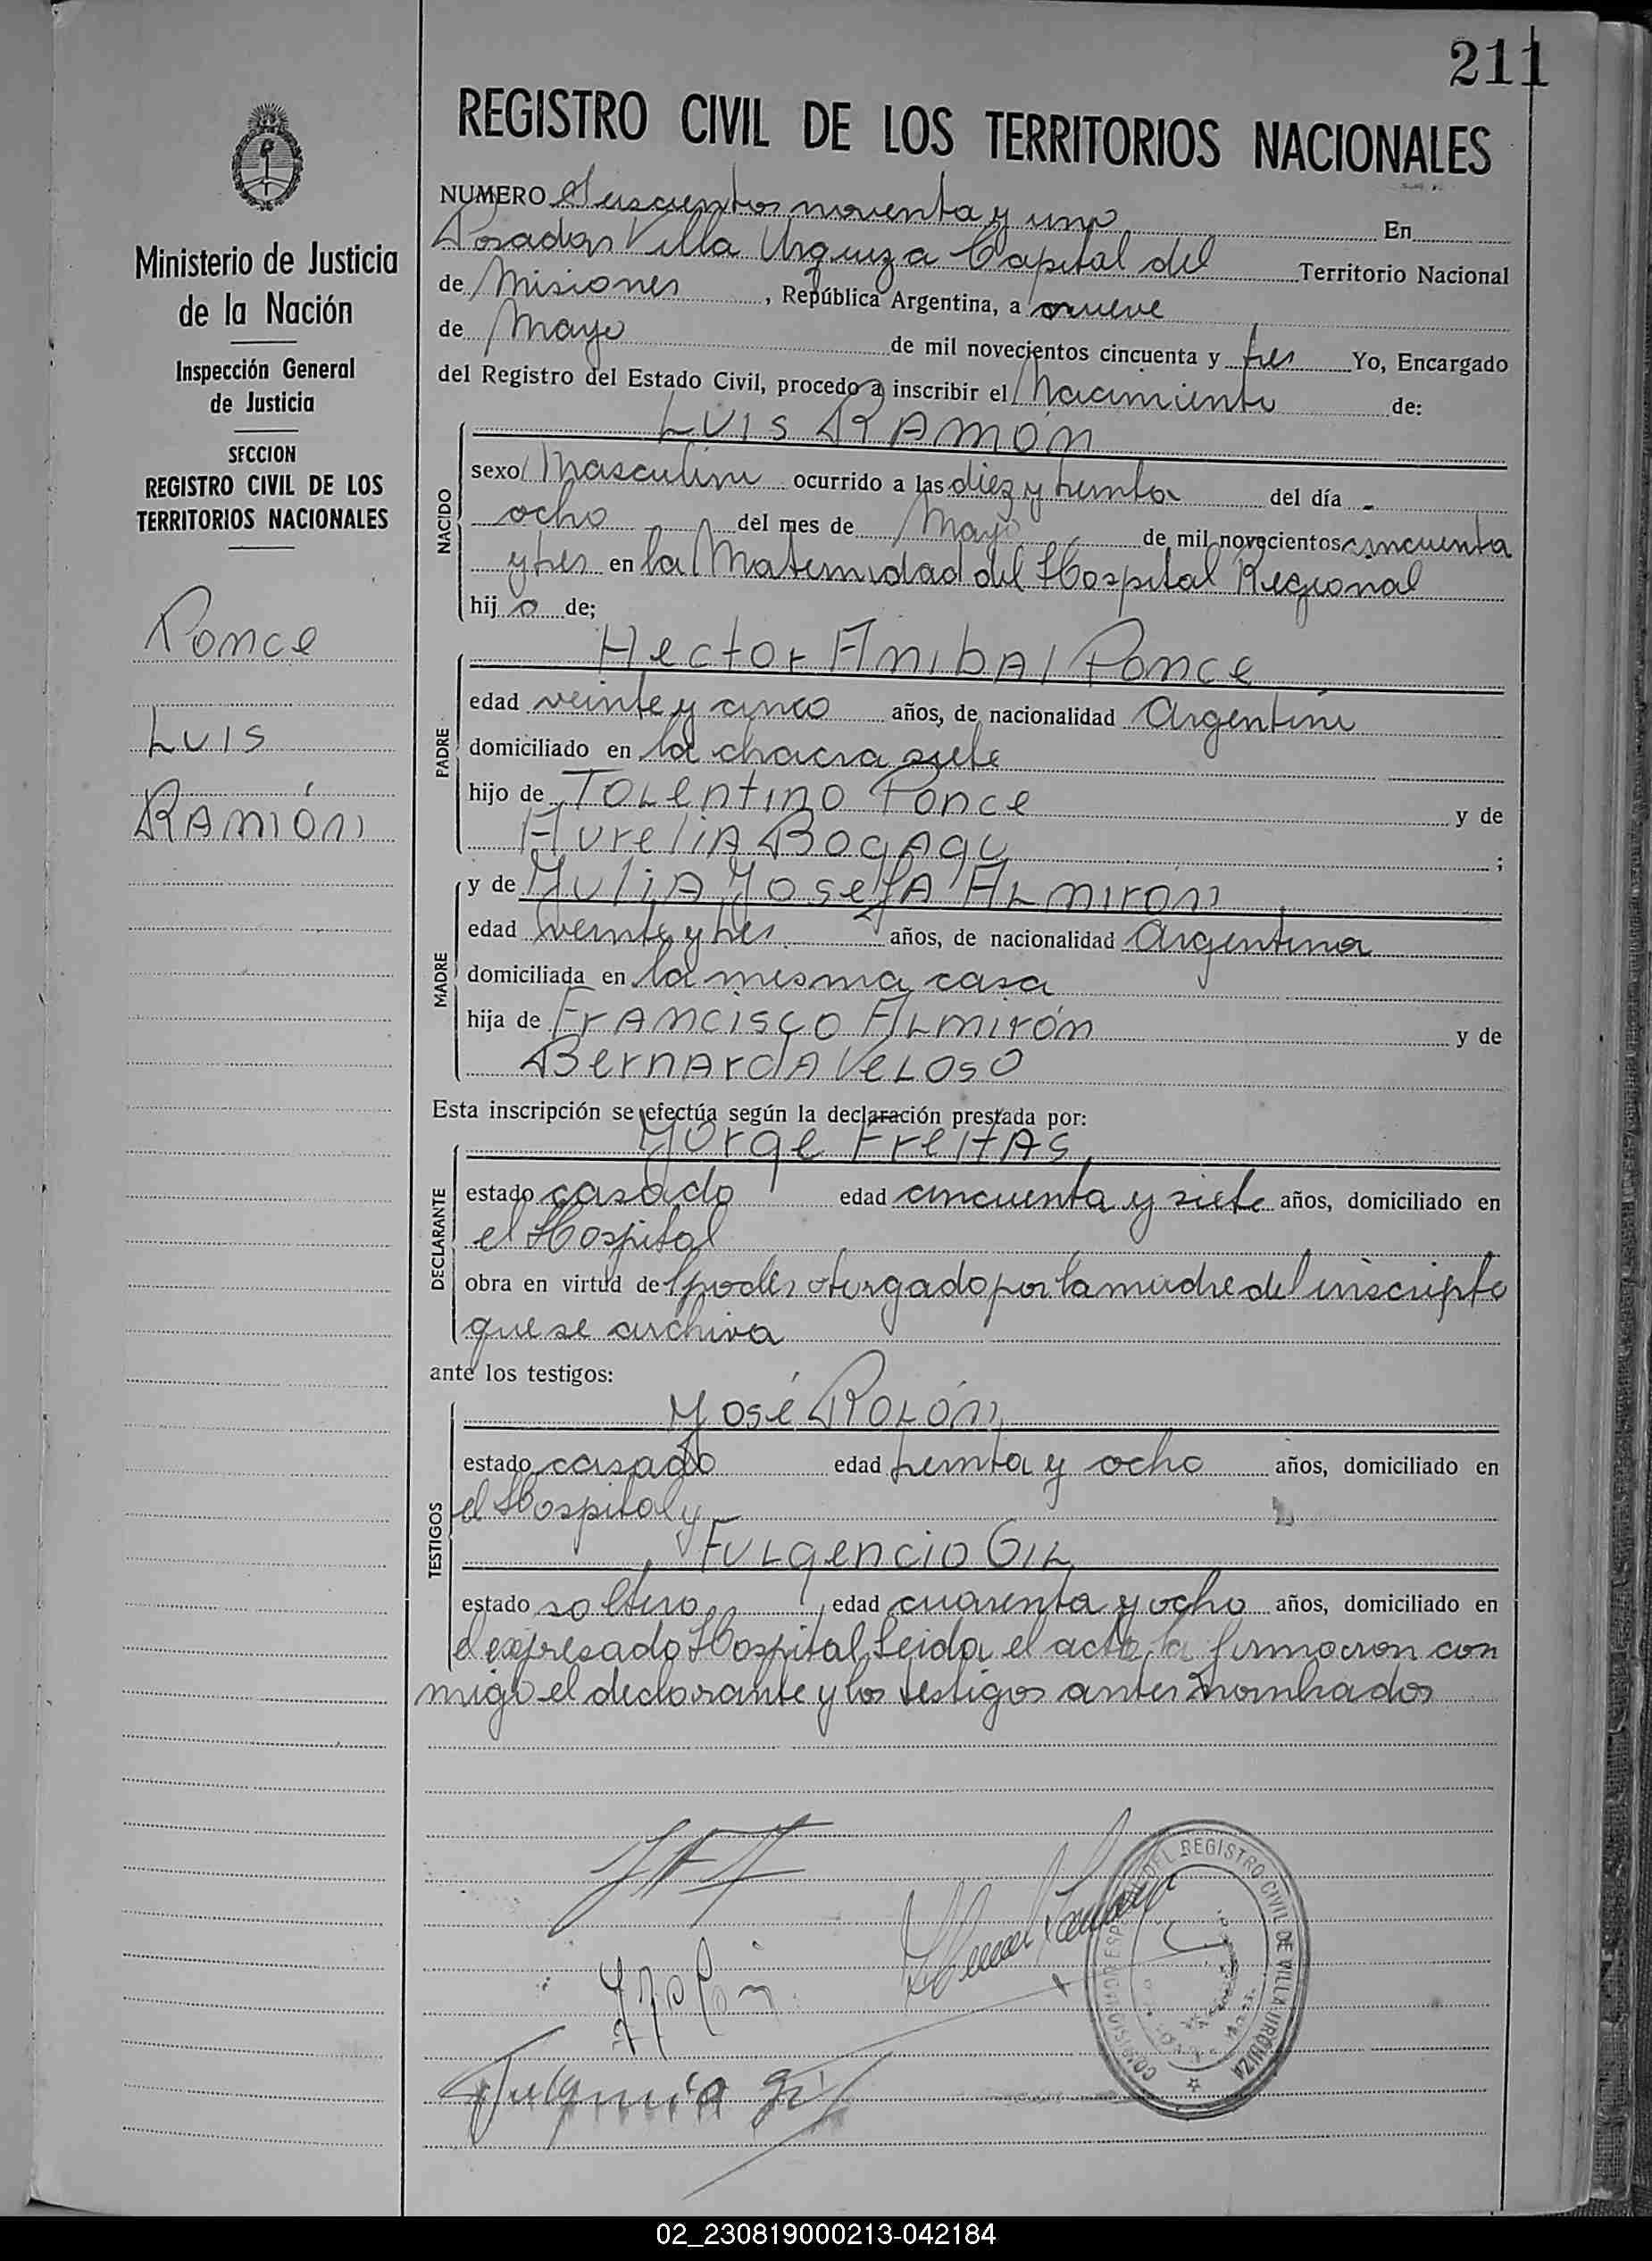 211
REGISTRO CIVIL DE LOS TERRITORIOS NACIONALES
Ministerio de Justicia
de la Nación
Inspección General
de Justicia
SECCION
REGISTRO CIVIL DE LOS
TERRITORIOS NACIONALES
Ponce
Luis
Ramón
NUMERO Seiscientos noventa y uno En
Posadas Villa Urquiza Capital del Territorio Nacional
de Misiones, República Argentina, a nueve
de Mayo de mil novecientos cincuenta y tres Yo, Encargado
del Registro del Estado Civil, procedo a inscribir el Nacimiento de:
NACIDO
Luis Ramón
sexo Masculino ocurrido a las diez y treinta del día
ocho del mes de Mayo de mil novecientos cincuenta
y tres en la Maternidad del Hospital Regional
hijo de;
PADRE
Hector Anibal Ponce
edad veinte y cinco años, de nacionalidad Argentino
domiciliado en la chacra siete
hijo de Tolentino Ponce y de
Aurelia Bogagu ;
MADRE
y de Julia Josefa Almirón
edad veinte y tres años, de nacionalidad Argentina
domiciliada en la misma casa
hija de Francisco Almirón y de
Bernarda Veloso
Esta inscripción se efectúa según la declaración prestada por:
DECLARANTE
Jorge Freitas
estado casado edad cincuenta y siete años, domiciliado en
el Hospital
obra en virtud del poder otorgado por la madre del inscripto
que se archiva
ante los testigos:
TESTIGOS
José Rolón
estado casado edad treinta y ocho años, domiciliado en
el Hospital y
Fulgencio Gil
estado soltero edad cuarenta y ocho años, domiciliado en
el expresado Hospital Leida el acta la firmaron con
migo el declarante y los testigos antes nombrados
J Rolón
Fulgencio Gil
DEL REGISTRO CIVIL DE VILLA URQUIZA
02_230819000213-042184